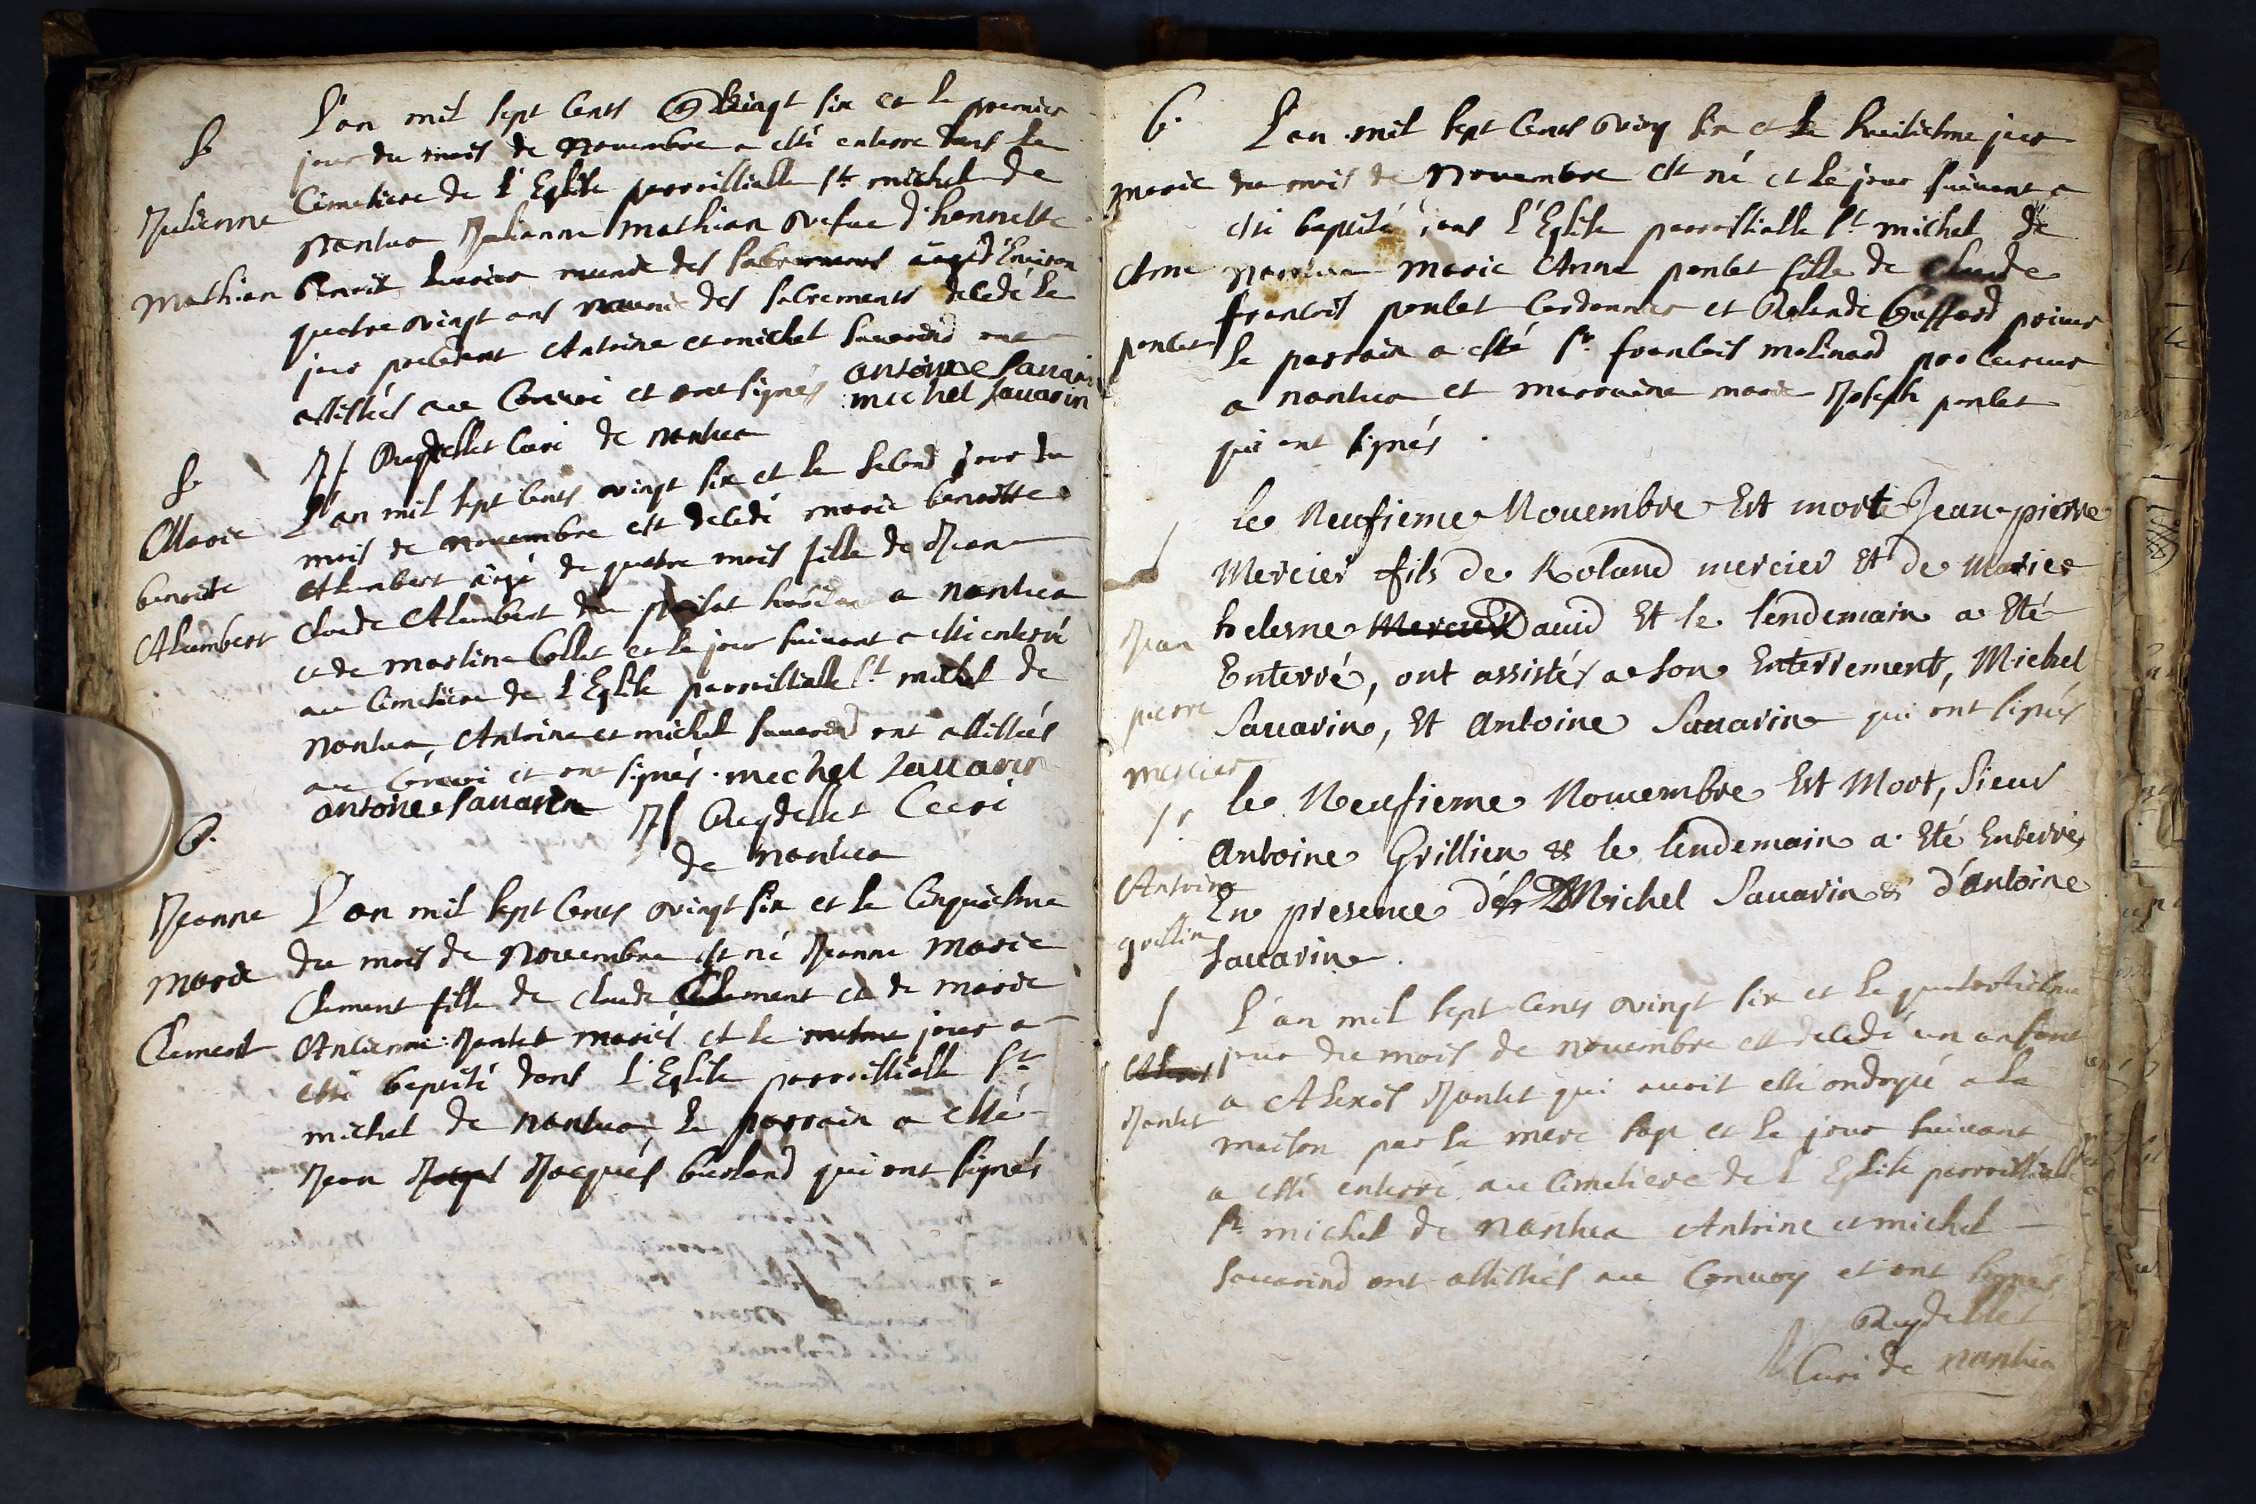 S.
Julienne
Mathian
L'an mil sept Cents vingt six et le premier
jour du mois de Novembre a esté enterré dans le
Cimetiere de l'Eglise parroissialle St. michel de
Nantua Julianne Mathian vefue d'honneste
Benoit munie des sacrements âgée d'Environ
quatre vingt ans munie des sacrements decedé le
jour precedent Antoine et michel Sauarind ont
assistés au Convoi et ont signés antoine Sauarin
michel Sauarin
Curé de Nantua
S.
Marie
benoite
Alumbert
L'an mil sept Cents vingt six et le second jour du
mois de Novembre est decedé marie benoitte
Alumbert âgé de quatre mois fille de Jean
Claude Alumbert du a Nantua
et de martine Collet et le jour suiuant a esté enterré
au Cimetiere de l'Eglise parroissialle St. michel de
Nantua, Antoine et michel Sauarind ont assistés
au Convoi et ont signés. mechel Sauarin
antoine Sauarin Curé
de Nantua
B.
Jeanne
Marie
Clement
L'an mil sept Cents vingt six et le Cinquiesme
du mois de Novembre est né Jeanne Marie
Clement fille de Claude Clement et de marie
Jantet mariés et le mesme jour a
esté baptisé dans l'Eglise parroissialle St.
michel de Nantua, le parrain a esté
Jean Jacques qui ont signés
B.
Marie
Anne
ponlet
L'an mil sept Cents ving six et le huitiesme jour
du mois de Novembre est né et le jour suiuant a
esté baptisé dans l'Eglise parroissialle St. michel de
Nantua Marie Anne ponlet fille de Claude
francois ponlet Cordonnier et Rolande
le parrain a esté Sr. francois molinard procureur
a Nantua et marraine marie Joseph ponlet
qui ont signés.
S
Jean
pierre
mercier
le Neufieme Nouembre Est mort Jean pierre
Mercier fils de Roland mercier Et de Marie
helesne Mercier Dauid Et le lendemain a Eté
Enterré, ont assistés a son Enterrement, Michel
Sauarin, Et Antoine Sauarin qui ont signés
Antoine
grillin
le Neufieme Nouembre Est Mort, Sieur
Antoine Grillien & le lendemain a Eté Enterré,
En presence de Michel Sauarin & d'Antoine
Sauarin.
S
Alexis
Jantet
L'an mil sept Cents vingt six et le quatorziesme
jour du mois de Nouembre est decedé un enfant
a Alexis Jantet qui auoit esté ondoyé a la
maison par la mere sage et le jour suiuant
a esté enterré au Cimetiere de l'Eglise parroissialle
St. michel de Nantua Antoine et michel
Sauarind ont assistés au Convoy et ont signés
Curé de Nantua